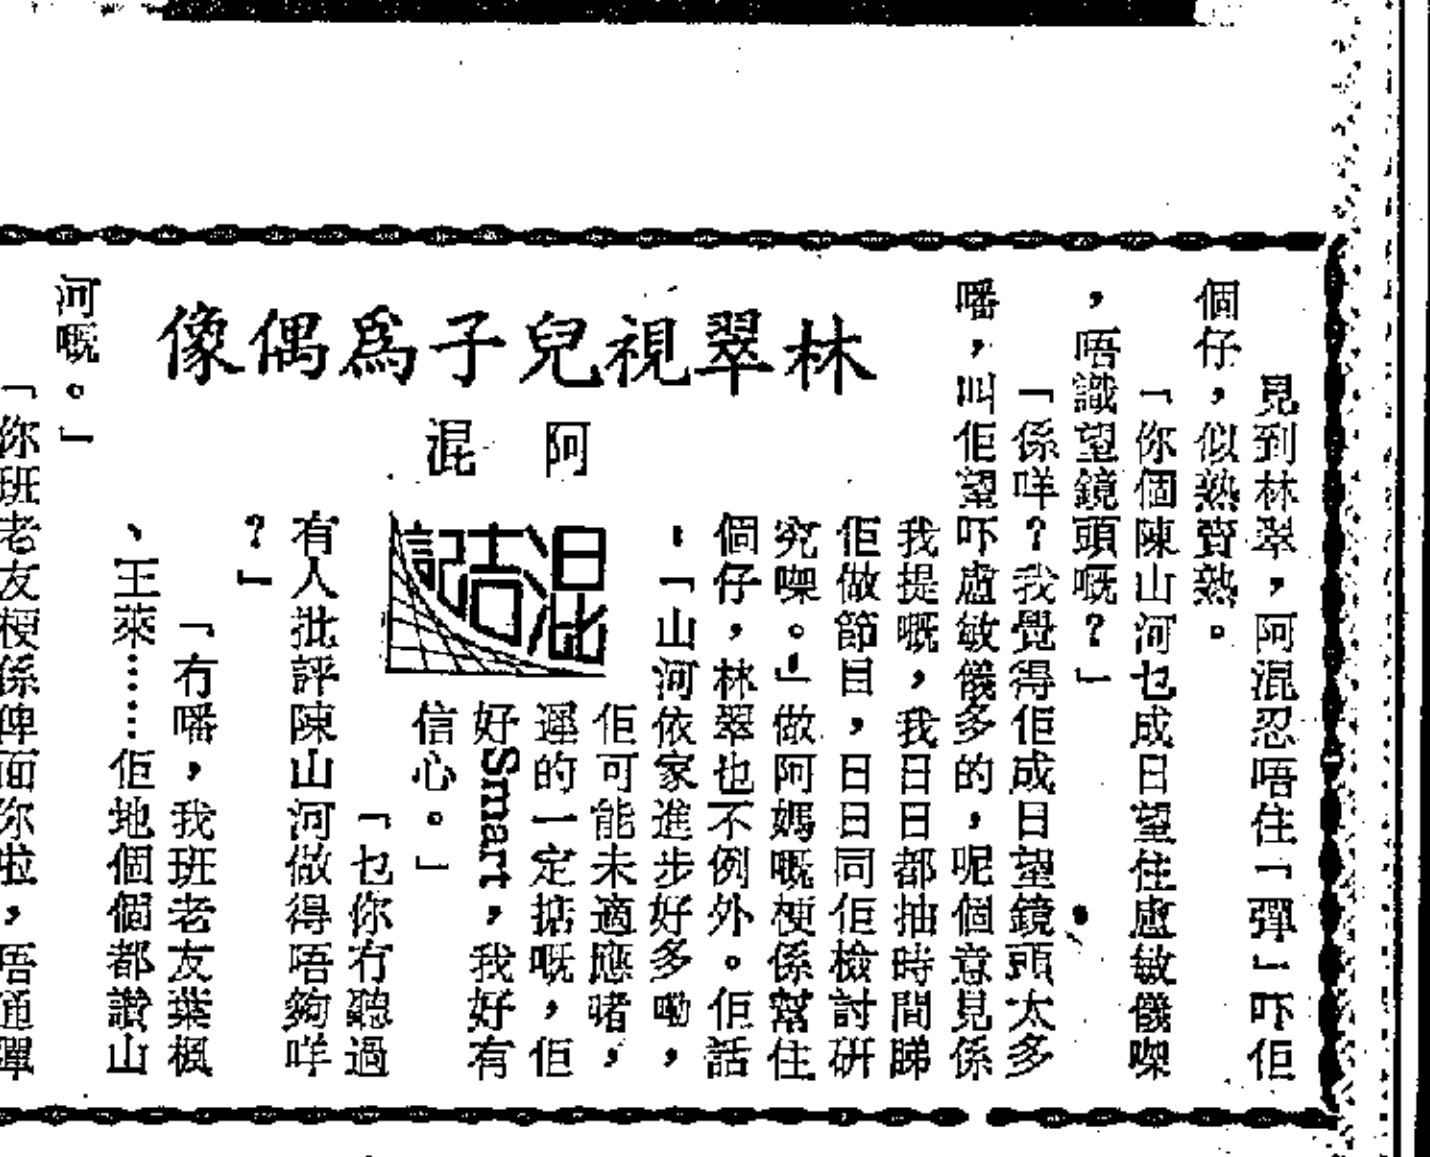 林翠視兒子爲偶像
阿混
混沌記
見到林翠，阿混忍唔住「彈」吓佢
個仔，似熟賣熟。
「你個陳山河乜成日望住盧敏儀㗎
，唔識望鏡頭嘅？」
「係咩？我覺得佢成日望鏡頭太多
噃，叫佢望吓盧敏儀多的，呢個意見係
我提嘅，我日日都抽時間睇
佢做節目，日日同佢檢討研
究㗎。」做阿媽嘅梗係幫住
個仔，林翠也不例外。佢話
：「山河依家進步好多嘞，
佢可能未適應啫，
遲的一定掂嘅，佢
好Smart，我好有
信心。」
「乜你冇聽過
有人批評陳山河做得唔夠咩
？」
「冇噃，我班老友葉楓
、王萊……佢地個個都讚山
河嘅。」
「你班老友梗係俾面你啦，唔通彈